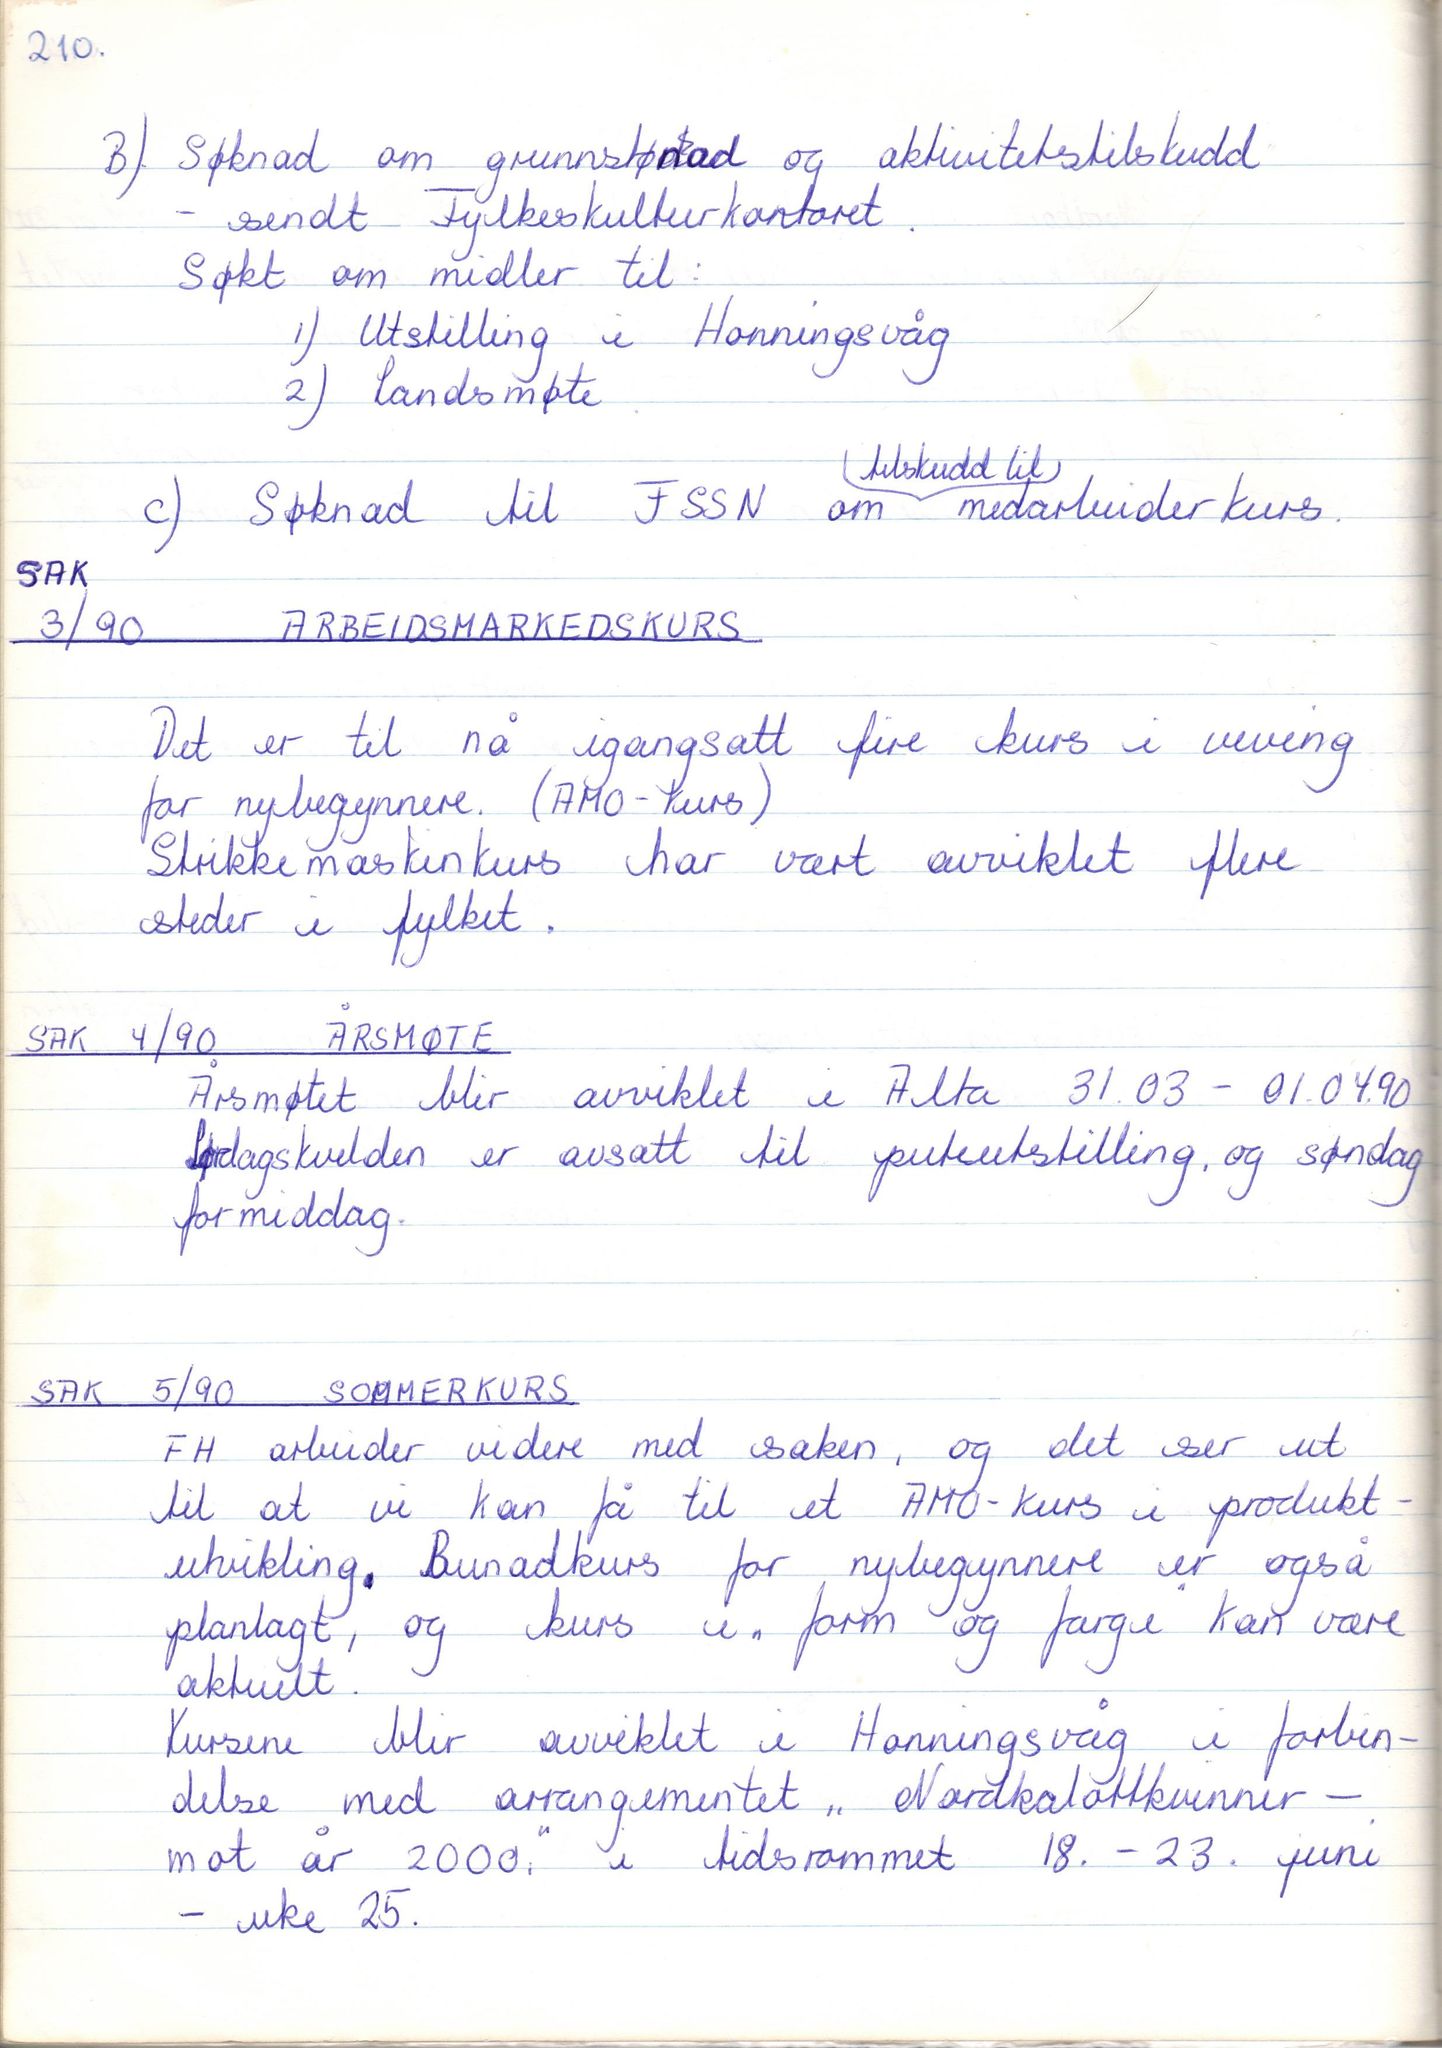 210.
B) Søknad om grunnstønad og aktivitetstilskudd
- sendt Fylkeskulturkontoret.
Søkt om midler til:
1) Utstilling i Honningsvåg
2) Landsmøte
tilskudd til
c) Søknad til FSSN om medarbeiderkurs.
SAK
3/90 ARBEIDSMARKEDSKURS
Det er til nå igangsatt fire kurs i veving
for nybegynnere. (AMO-kurs)
Strikkemaskinkurs har vært avviklet flere
steder i fylket.
SAK 4/90 ÅRSMØTE
Årsmøtet blir avviklet i Alta 31.03 - 01.04.90
Lørdagskvelden er avsatt til puteutstilling, og søndag
formiddag.
SAK 5/90 SOMMERKURS
FH arbeider videre med saken, og det ser ut
til at vi kan få til et AMO-kurs i produkt-
utvikling. Bunadkurs for nybegynnere er også
planlagt, og kurs i „form og farge" kan være
aktuelt.
Kursene blir avviklet i Honningsvåg i forbin-
delse med arrangementet „Nordkalottkvinner -
mot år 2000." i tidsrommet 18. - 23. juni
- uke 25.